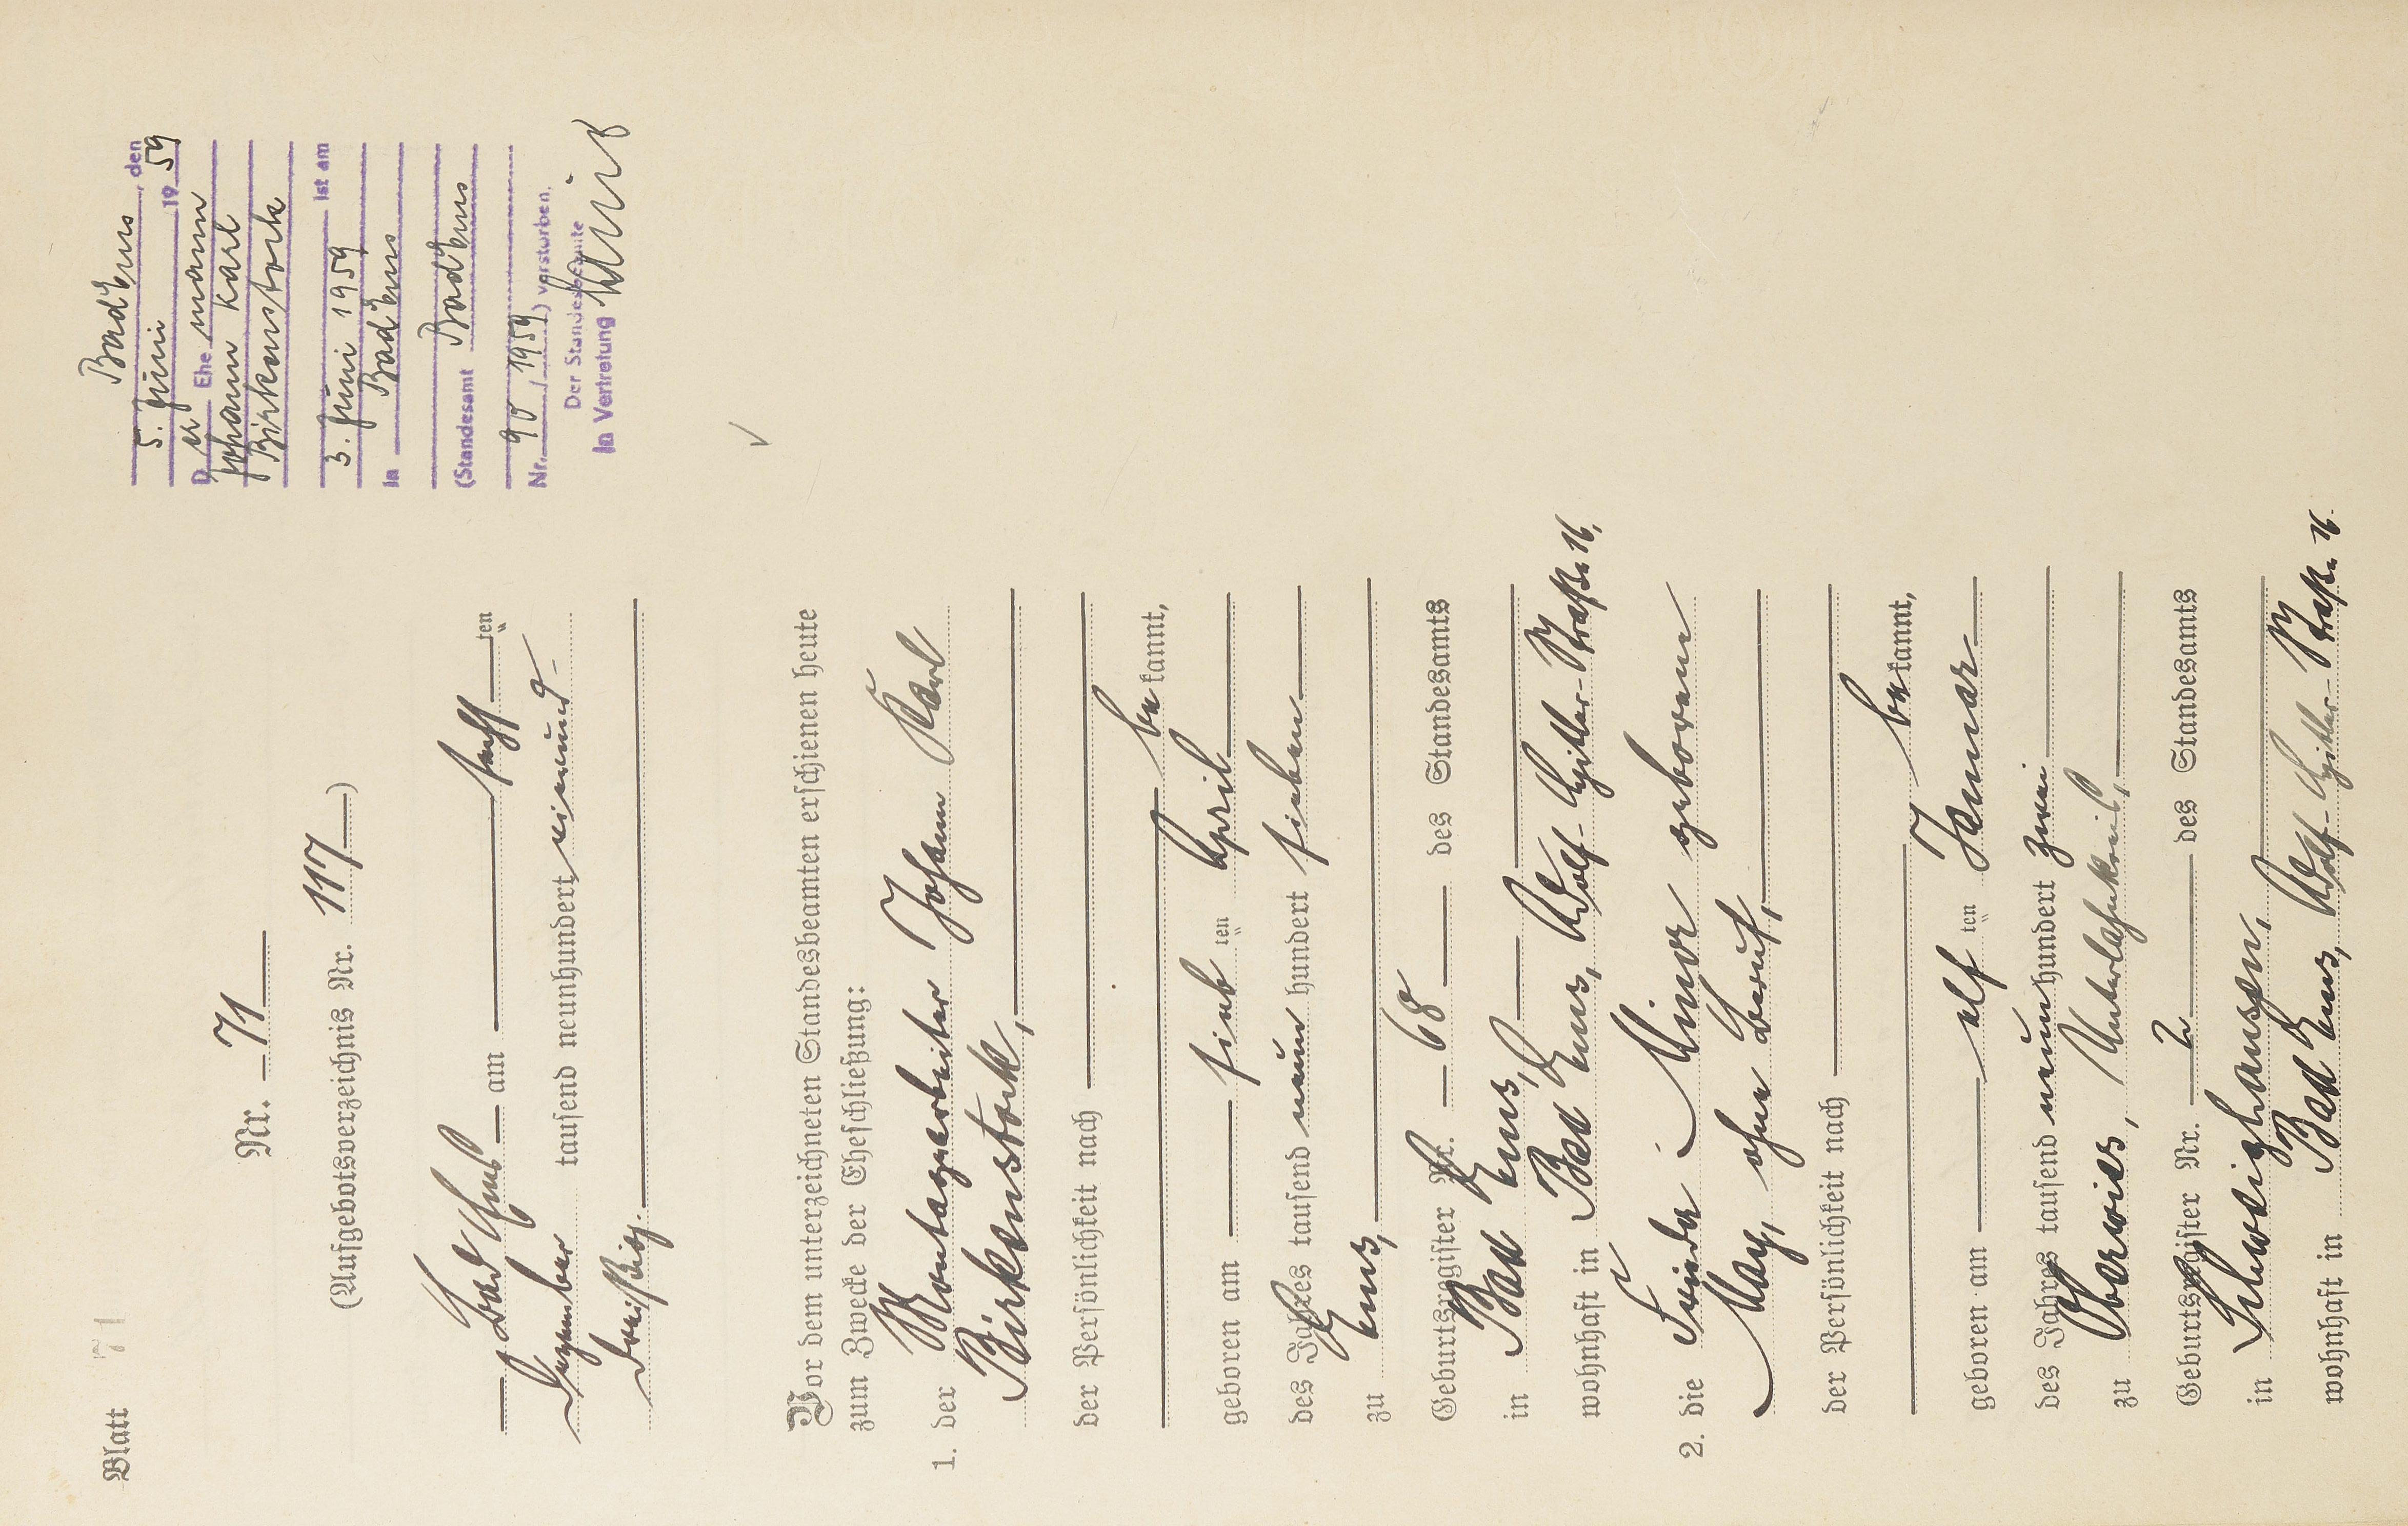 Blatt 71
Bad Ems, den
5. Juni 1959
Der Ehemann
Johann Karl
Birkenstock
ist am
3. Juni 1959
in Bad Ems
(Standesamt Bad Ems
Nr. 90/1959) verstorben.
Der Standesbeamte
In Vertretung
Nr. 71
(Aufgebotsverzeichnis Nr. 117)
Bad Ems am sechsten
Dezember tausend neunhundert einund-
dreißig.
Vor dem unterzeichneten Standesbeamten erschienen heute
zum Zwecke der Eheschließung:
1. der Montagearbeiter Johann Karl
Birkenstock,
der Persönlichkeit nach
bekannt,
geboren am siebten April
des Jahres tausend neunhundert sieben
zu Ems,
Geburtsregister Nr. 68 des Standesamts
in Bad Ems,
wohnhaft in Bad Ems, Adolf-Hitler-Straße 16,
2. die Frieda Minor geborene
May, ohne Beruf,
der Persönlichkeit nach
bekannt,
geboren am elften Januar
des Jahres tausend neunhundert zwei
zu Oberwies, Unterlahnkreis,
Geburtsregister Nr. 2 des Standesamts
in Schweighausen,
wohnhaft in Bad Ems, Adolf-Hitler-Straße 16.